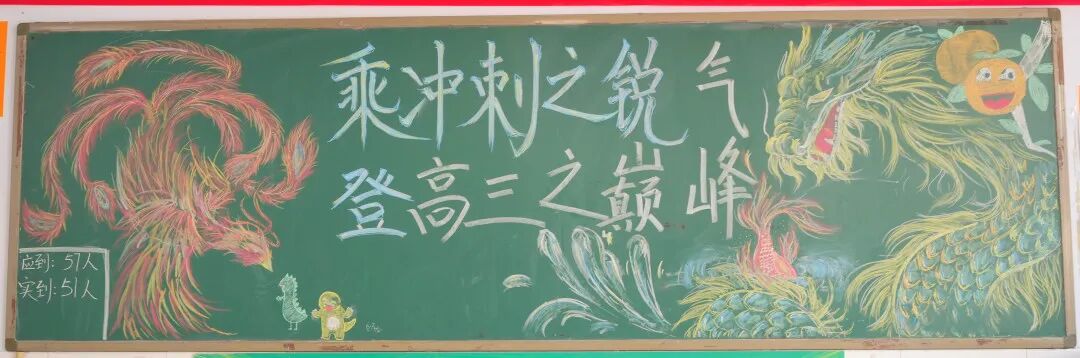 乘冲刺之锐气
登高三之巅峰
应到：57人
实到：51人